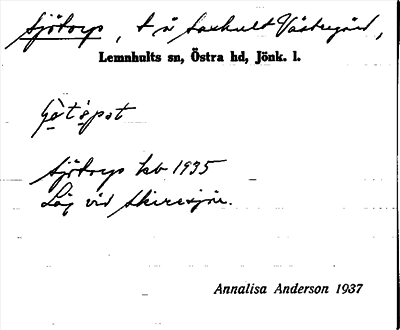 Sjötorp, t. å Saxhult Västregård,
Lemnhults sn, Östra hd, Jönk. l.
Sjötorp kb 1935
Låg vid Skiresjön.
Annalisa Anderson 1937